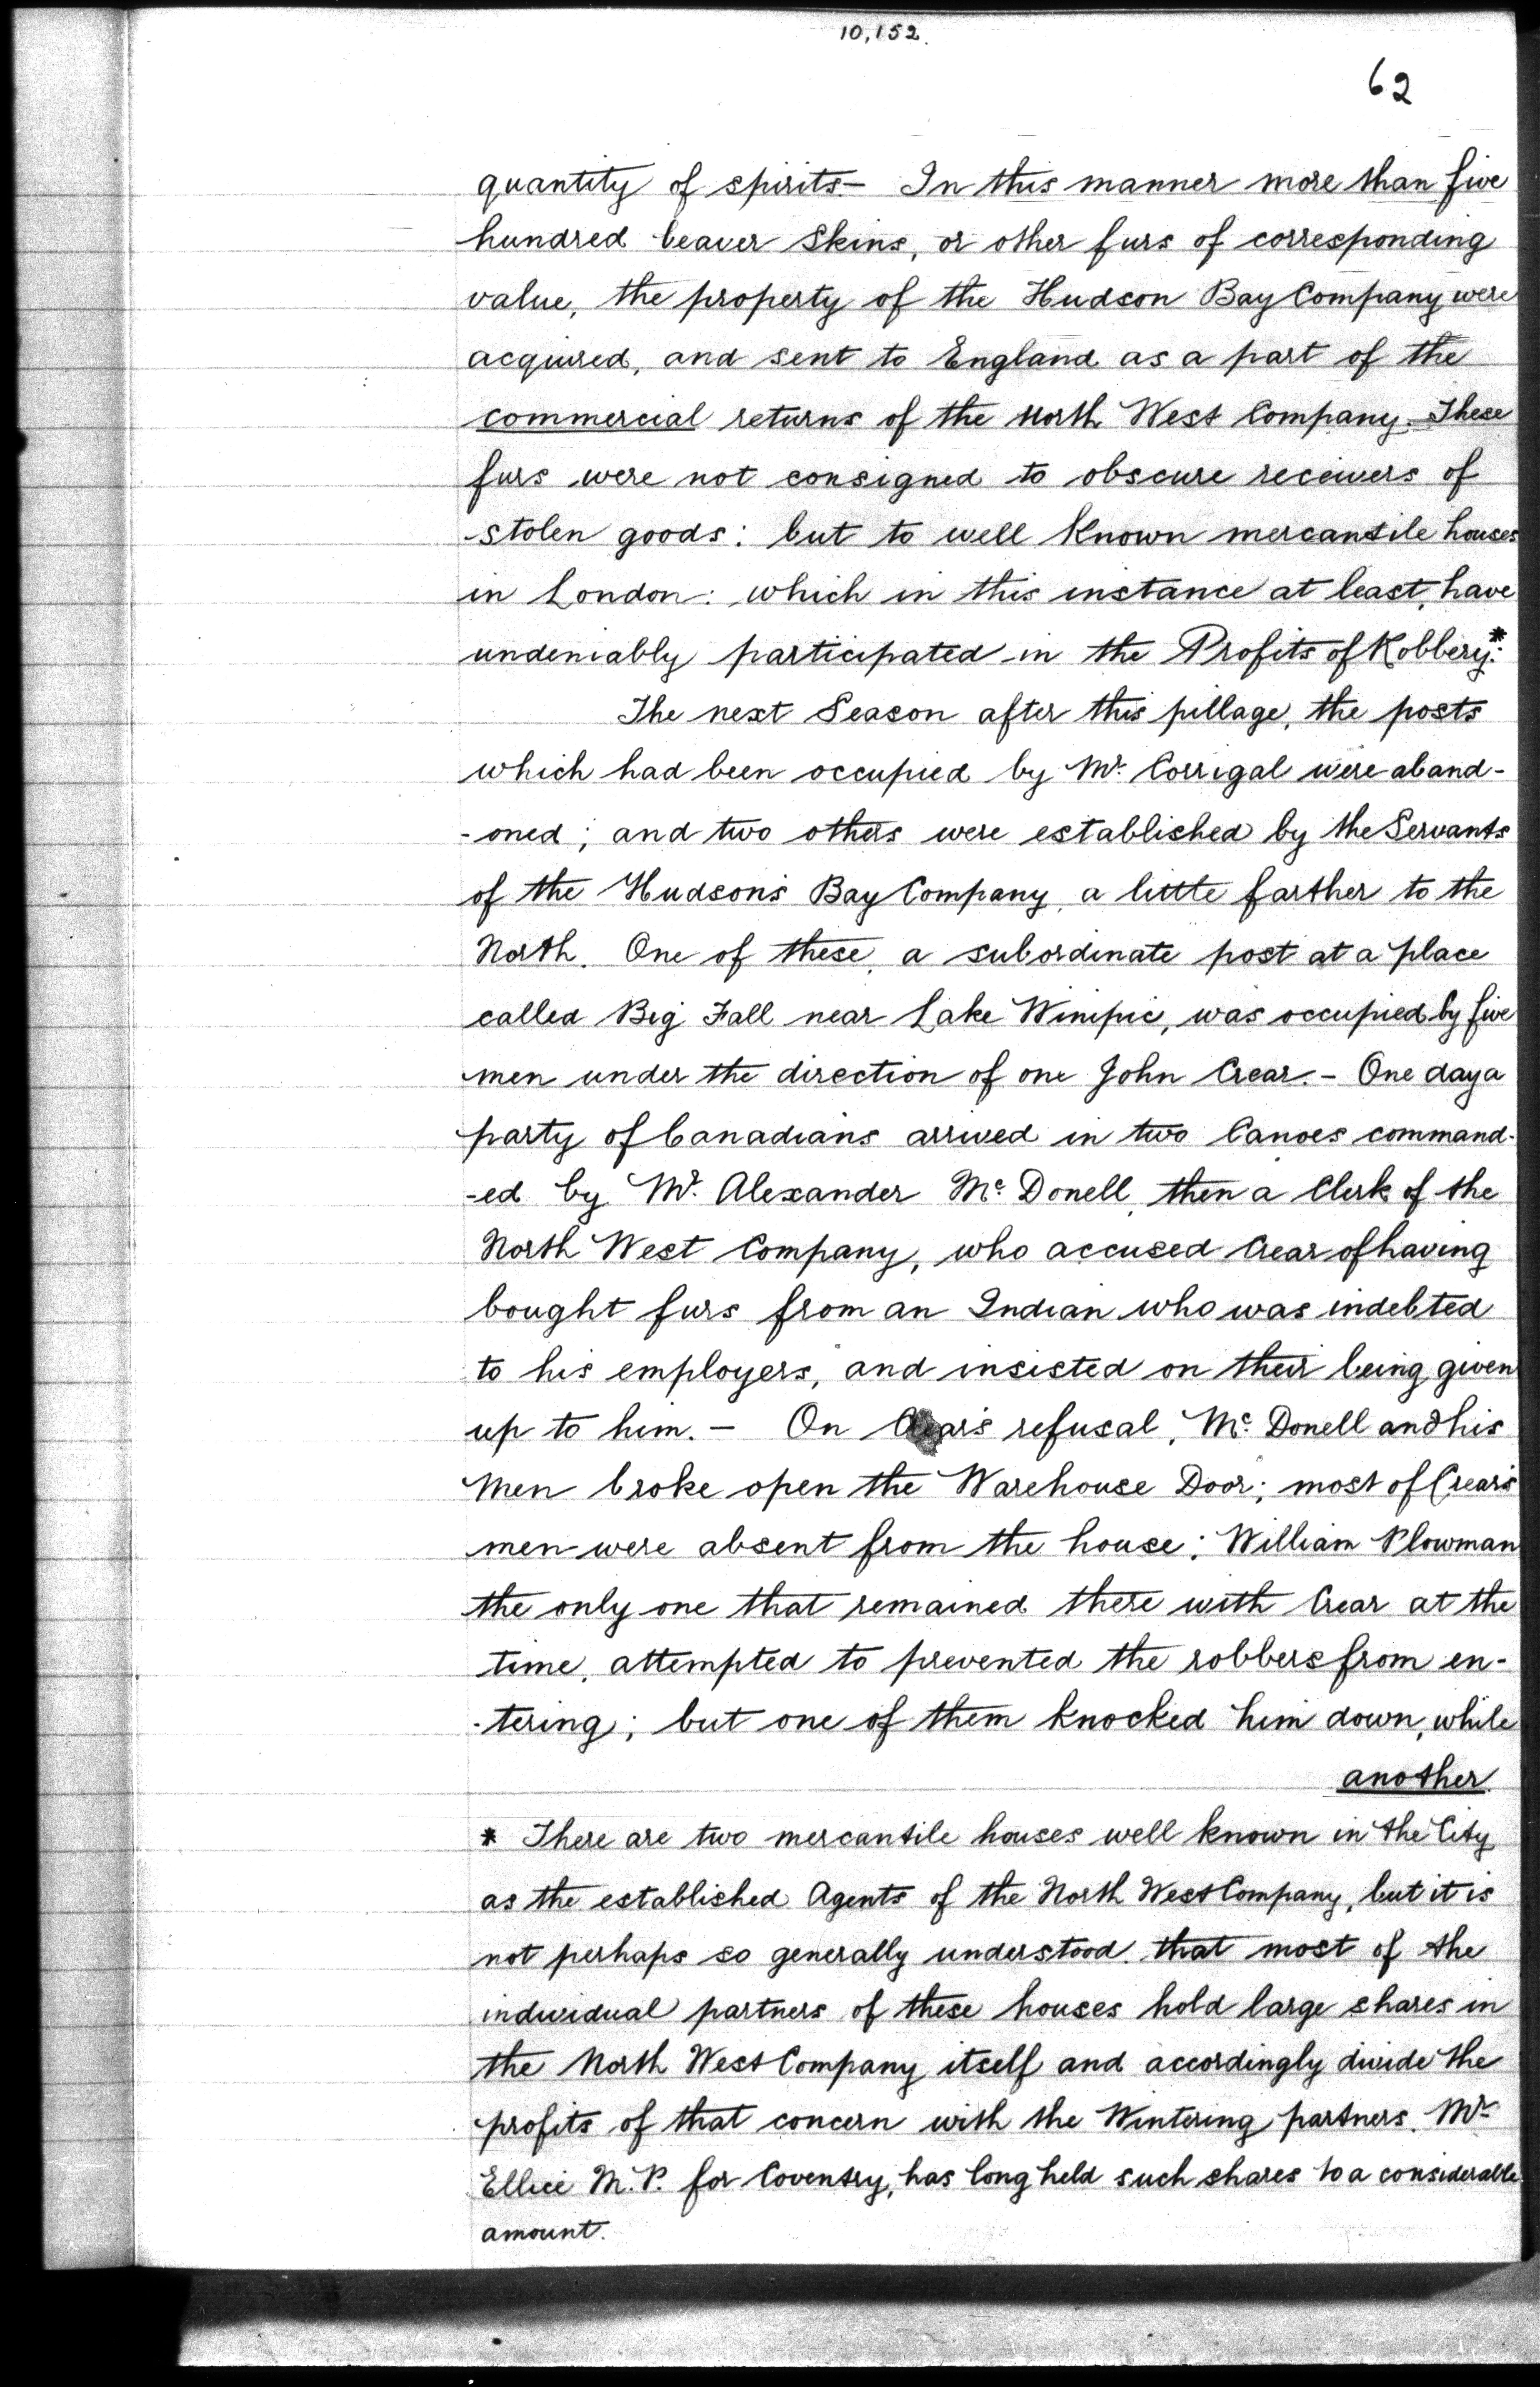 10,152.
62
quantity of spirits - In this manner more than five
hundred beaver Skins, or other furs of corresponding
value, the property of the Hudson Bay Company were
acquired, and sent to England as a part of the
commercial returns of the North West Company. These
furs were not consigned to obscure receivers of
stolen goods: but to well Known mercantile houses
in London: which in this instance at least, have
undeniably participated in the Profits of Robbery.*
The next Season after this pillage, the posts
which had been occupied by Mr. Corrigal were aband-
-oned; and two others were established by the Servants
of the Hudson's Bay Company, a little farther to the
North. One of these, a subordinate post at a place
called Big Fall near Lake Winipic, was occupied by five
men under the direction of one John Crear. - One day a
party of Canadians arrived in two Canoes command-
-ed by Mr. Alexander Mc. Donell, then a Clerk of the
North West Company, who accused Crear of having
bought furs from an Indian who was indebted
to his employers, and insisted on their being given
up to him. - On Crear's refusal, Mc. Donell and his
Men broke open the Warehouse Door; most of Crear's
men were absent from the house: William Plowman
the only one that remained there with Crear at the
time, attempted to prevented the robbers from en-
-tering; but one of them knocked him down, while
another
* There are two mercantile houses well known in the City
as the established Agents of the North West Company, but it is
not perhaps so generally understood that most of the
individual partners of these houses hold large shares in
the North West Company itself and accordingly divide the
profits of that concern with the Wintering partners. Mr.
Ellice M.P. for Coventry, has long held such shares to a considerable
amount.